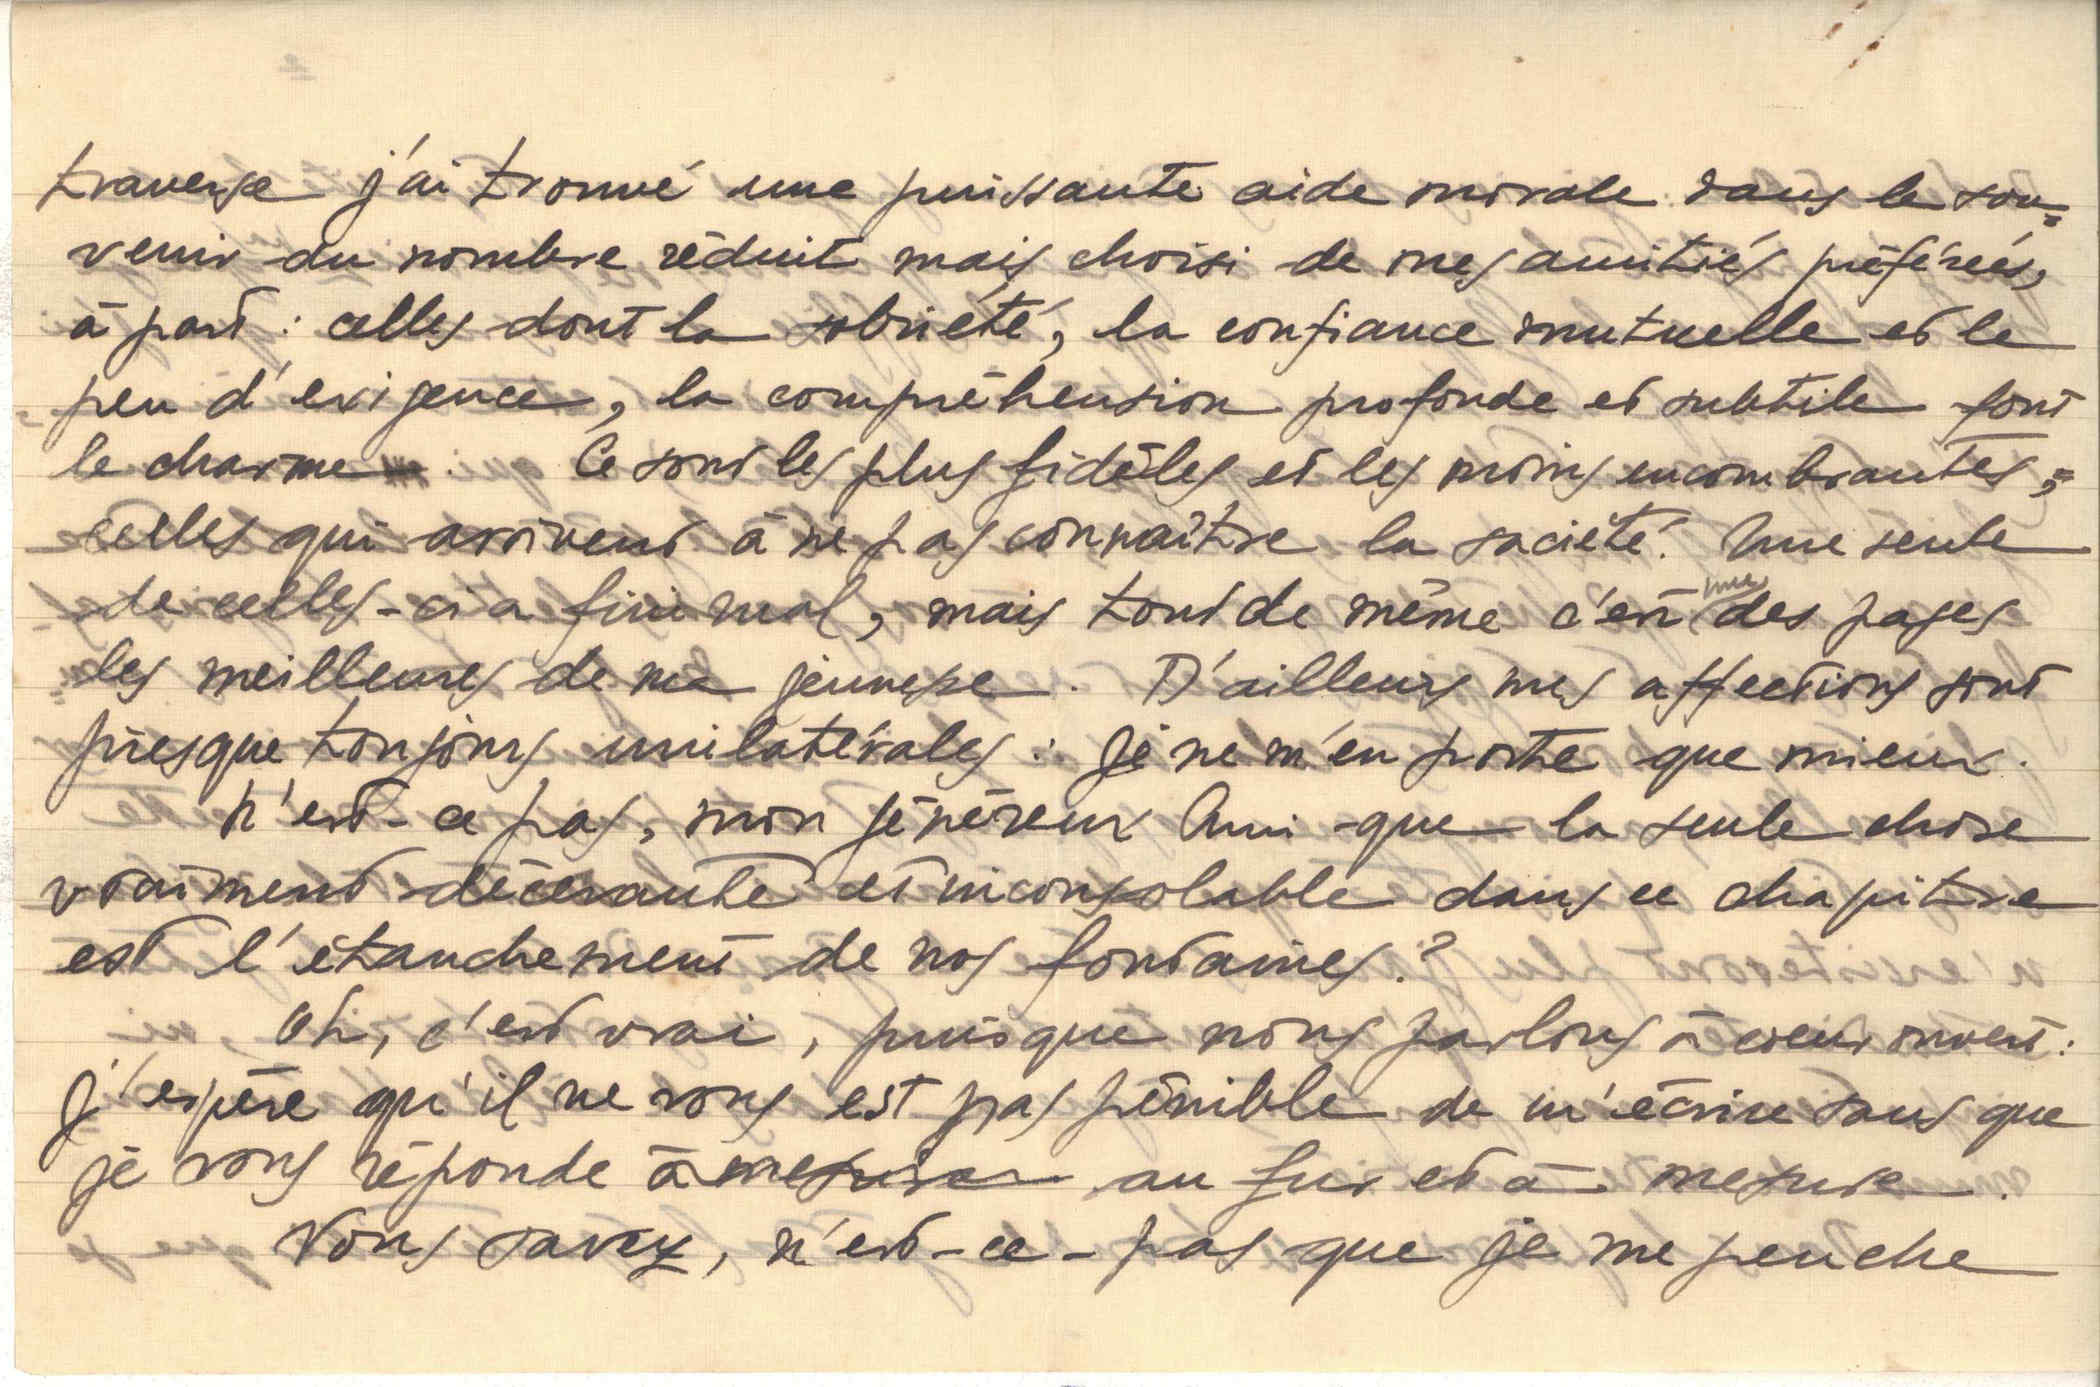 traverse j'ai trouvé une puissante aide morale dans le sou=
venir du nombre réduit mais choisi de mes amitiés préférées,
à part : celles dont la sobriété, la confiance mutuelle et le
peu d'exigence, la compréhension profonde et subtile font
le charme. Ce sont les plus fidèles et les moins encombrantes,=
celles qui arrivent à ne pas connaître la société. Une seule
de celles-ci a fini mal, mais tout de même c'est une des pages
les meilleures de ma jeunesse. D'ailleurs mes affections sont
presque toujours unilatérales : je ne m'en porte que mieux.
N'est-ce pas, mon généreux Ami - que la seule chose
vraiment décevante et inconsolable dans ce chapitre
est l'étanchement de nos fontaines ?
Oh, c'est vrai, puisque nous parlons à cœur ouvert :
j'espère qu'il ne vous est pas pénible de m'écrire sans que
je vous réponde à mesure au fur et à mesure.
Vous savez, n'est-ce-pas que je me penche